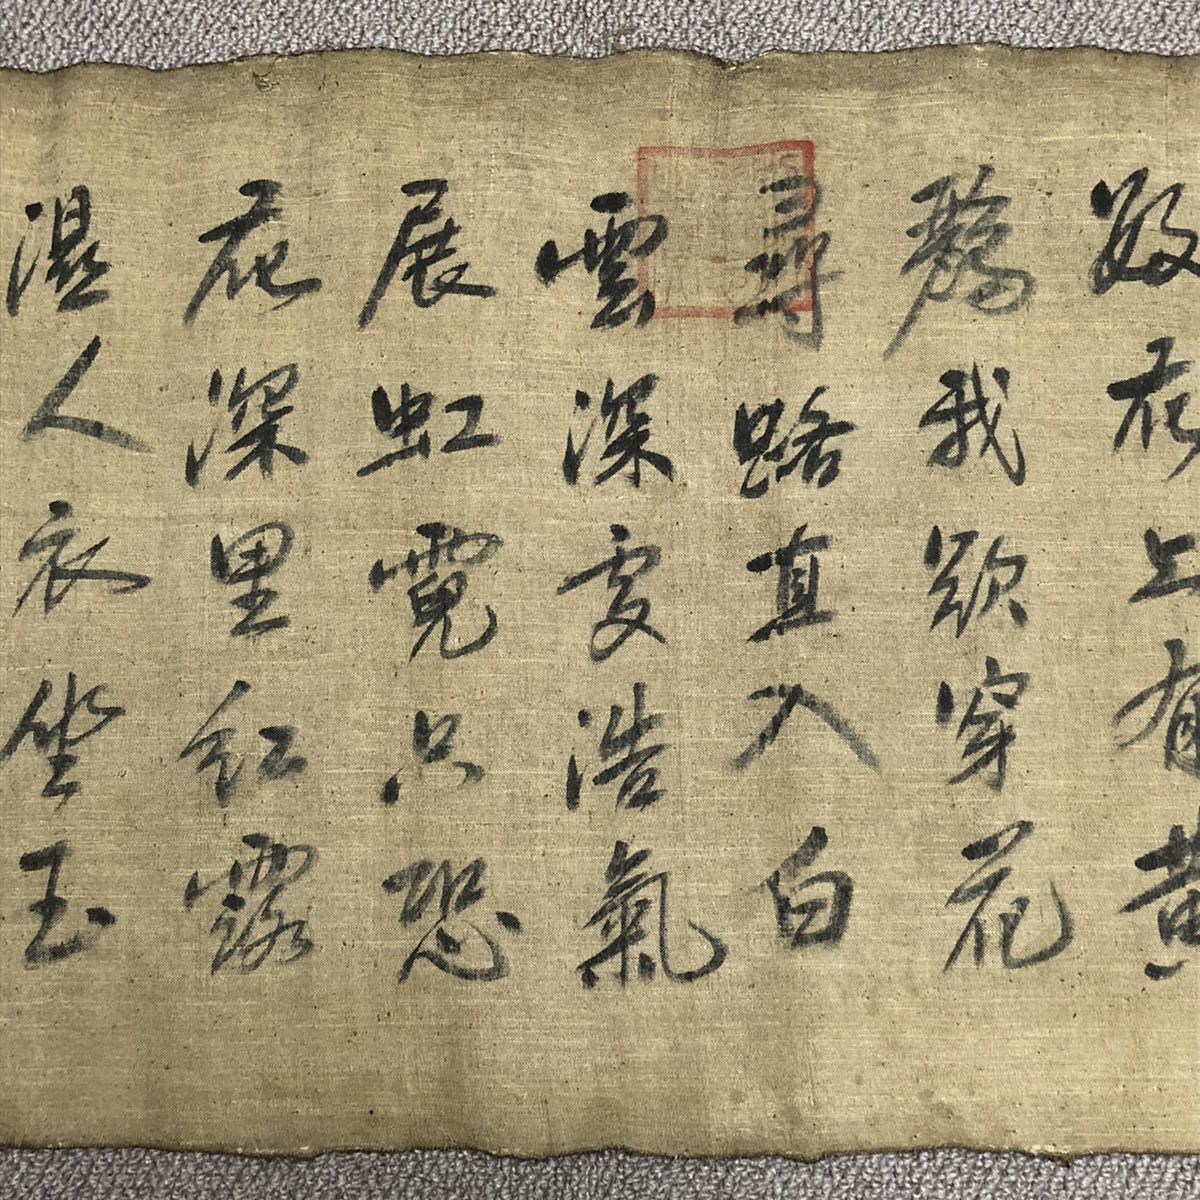 數花上有黃
鸝我欲穿花
尋路直入白
雲深處浩氣
展虹霓只恐
花深里紅露
濕人衣坐玉